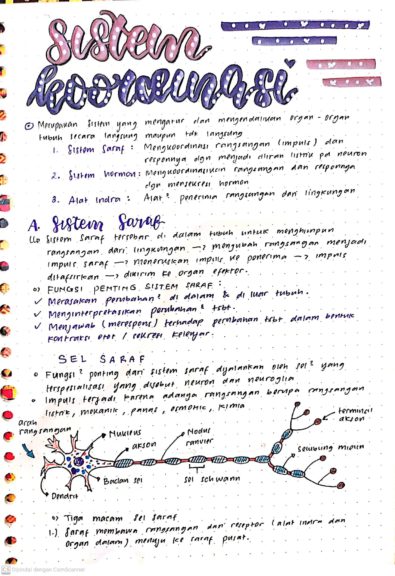 sistem
koordinasi
Merupakan sistem yang mengatur dan mengendalikan organ-organ
tubuh secara langsung maupun tdk langsung
1. Sistem Saraf : Mengkoordinasi rangsangan (impuls) dan
responnya dgn menjadi aliran listrik pd neuron
2. Sistem Hormon : Mengkoordinasikan rangsangan dan responnya
dgn mensekresi hormon
3. Alat Indra : Alat² penerima rangsangan dari lingkungan
A. Sistem Saraf
Sistem saraf tersebar di dalam tubuh untuk menghimpun
rangsangan dari lingkungan → mengubah rangsangan menjadi
impuls saraf → meneruskan impuls ke penerima → impuls
ditafsirkan → dikirim ke organ efektor.
o) FUNGSI PENTING SISTEM SARAF :
✓ Merasakan perubahan² di dalam & di luar tubuh.
✓ Menginterpretasikan perubahan² tsbt.
✓ Menjawab (merespons) terhadap perubahan tsbt dalam bentuk
kontraksi otot / sekresi kelenjar.
SEL SARAF
o Fungsi² penting dari sistem saraf dijalankan oleh sel² yang
terspesialisasi yang disebut neuron dan neuroglia
o Impuls terjadi karena adanya rangsangan berupa rangsangan
listrik, mekanik, panas, osmonic, kimia
arah
rangsangan
Nukleus
akson
Nodus
ranvier
terminal
akson
Selubung mielin
Dendrit
Badan sel
sel schwann
o) Tiga macam sel saraf
1.) Saraf membawa rangsangan dari reseptor (alat indra dan
organ dalam) menuju ke saraf pusat.
CS Dipindai dengan CamScanner